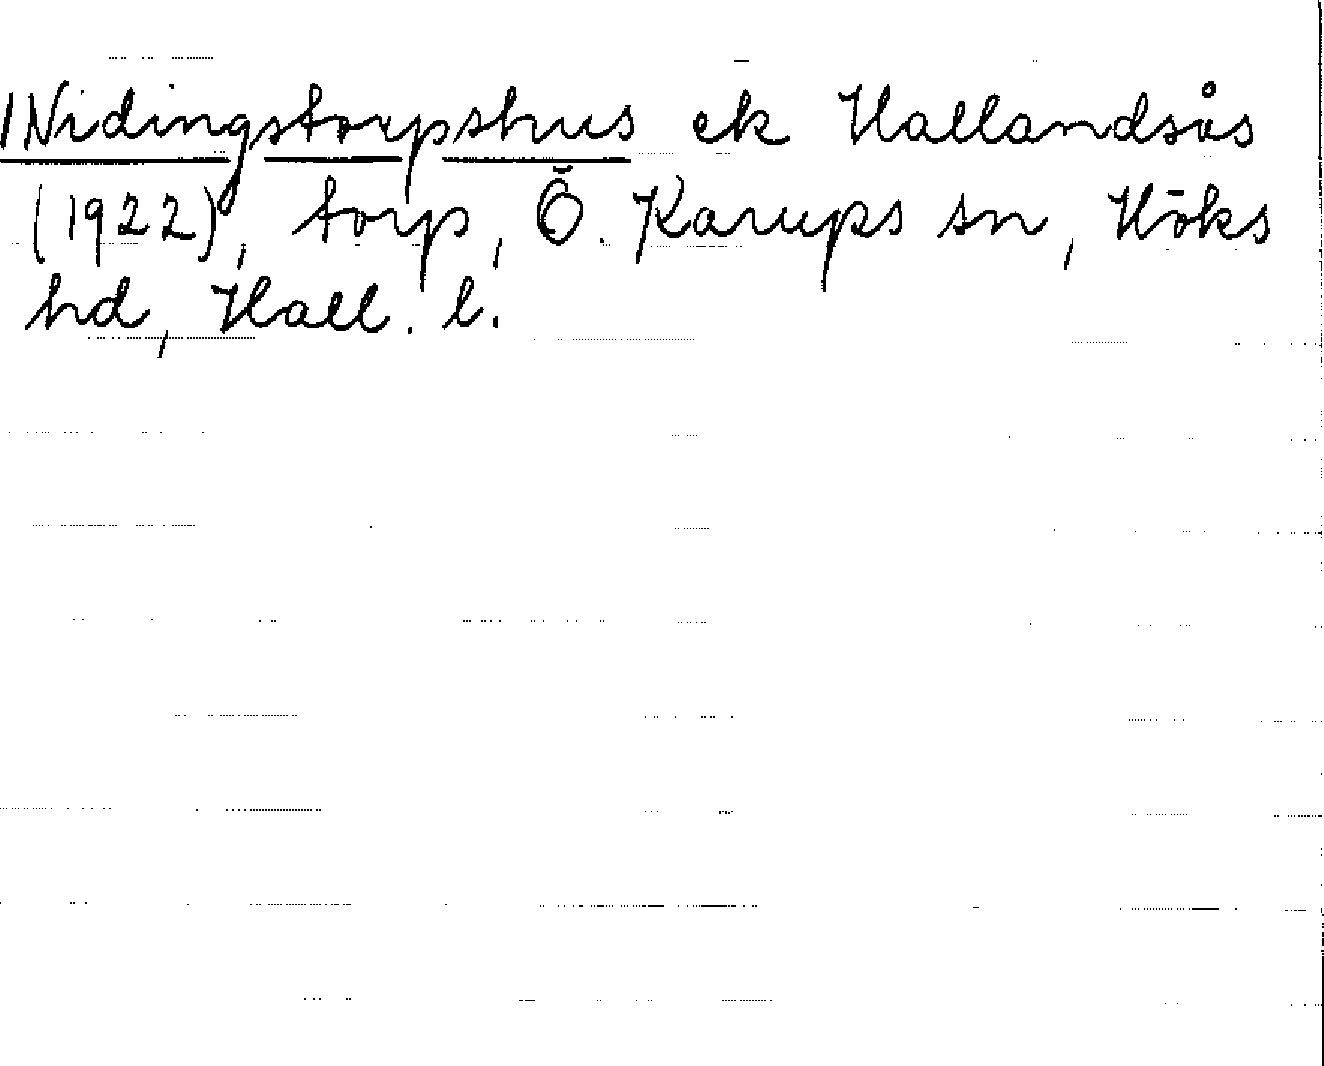 Nidingstorpshus ek Hallandsås
(1922), torp, Ö. Karups sn, Höks
hd, Hall. l.